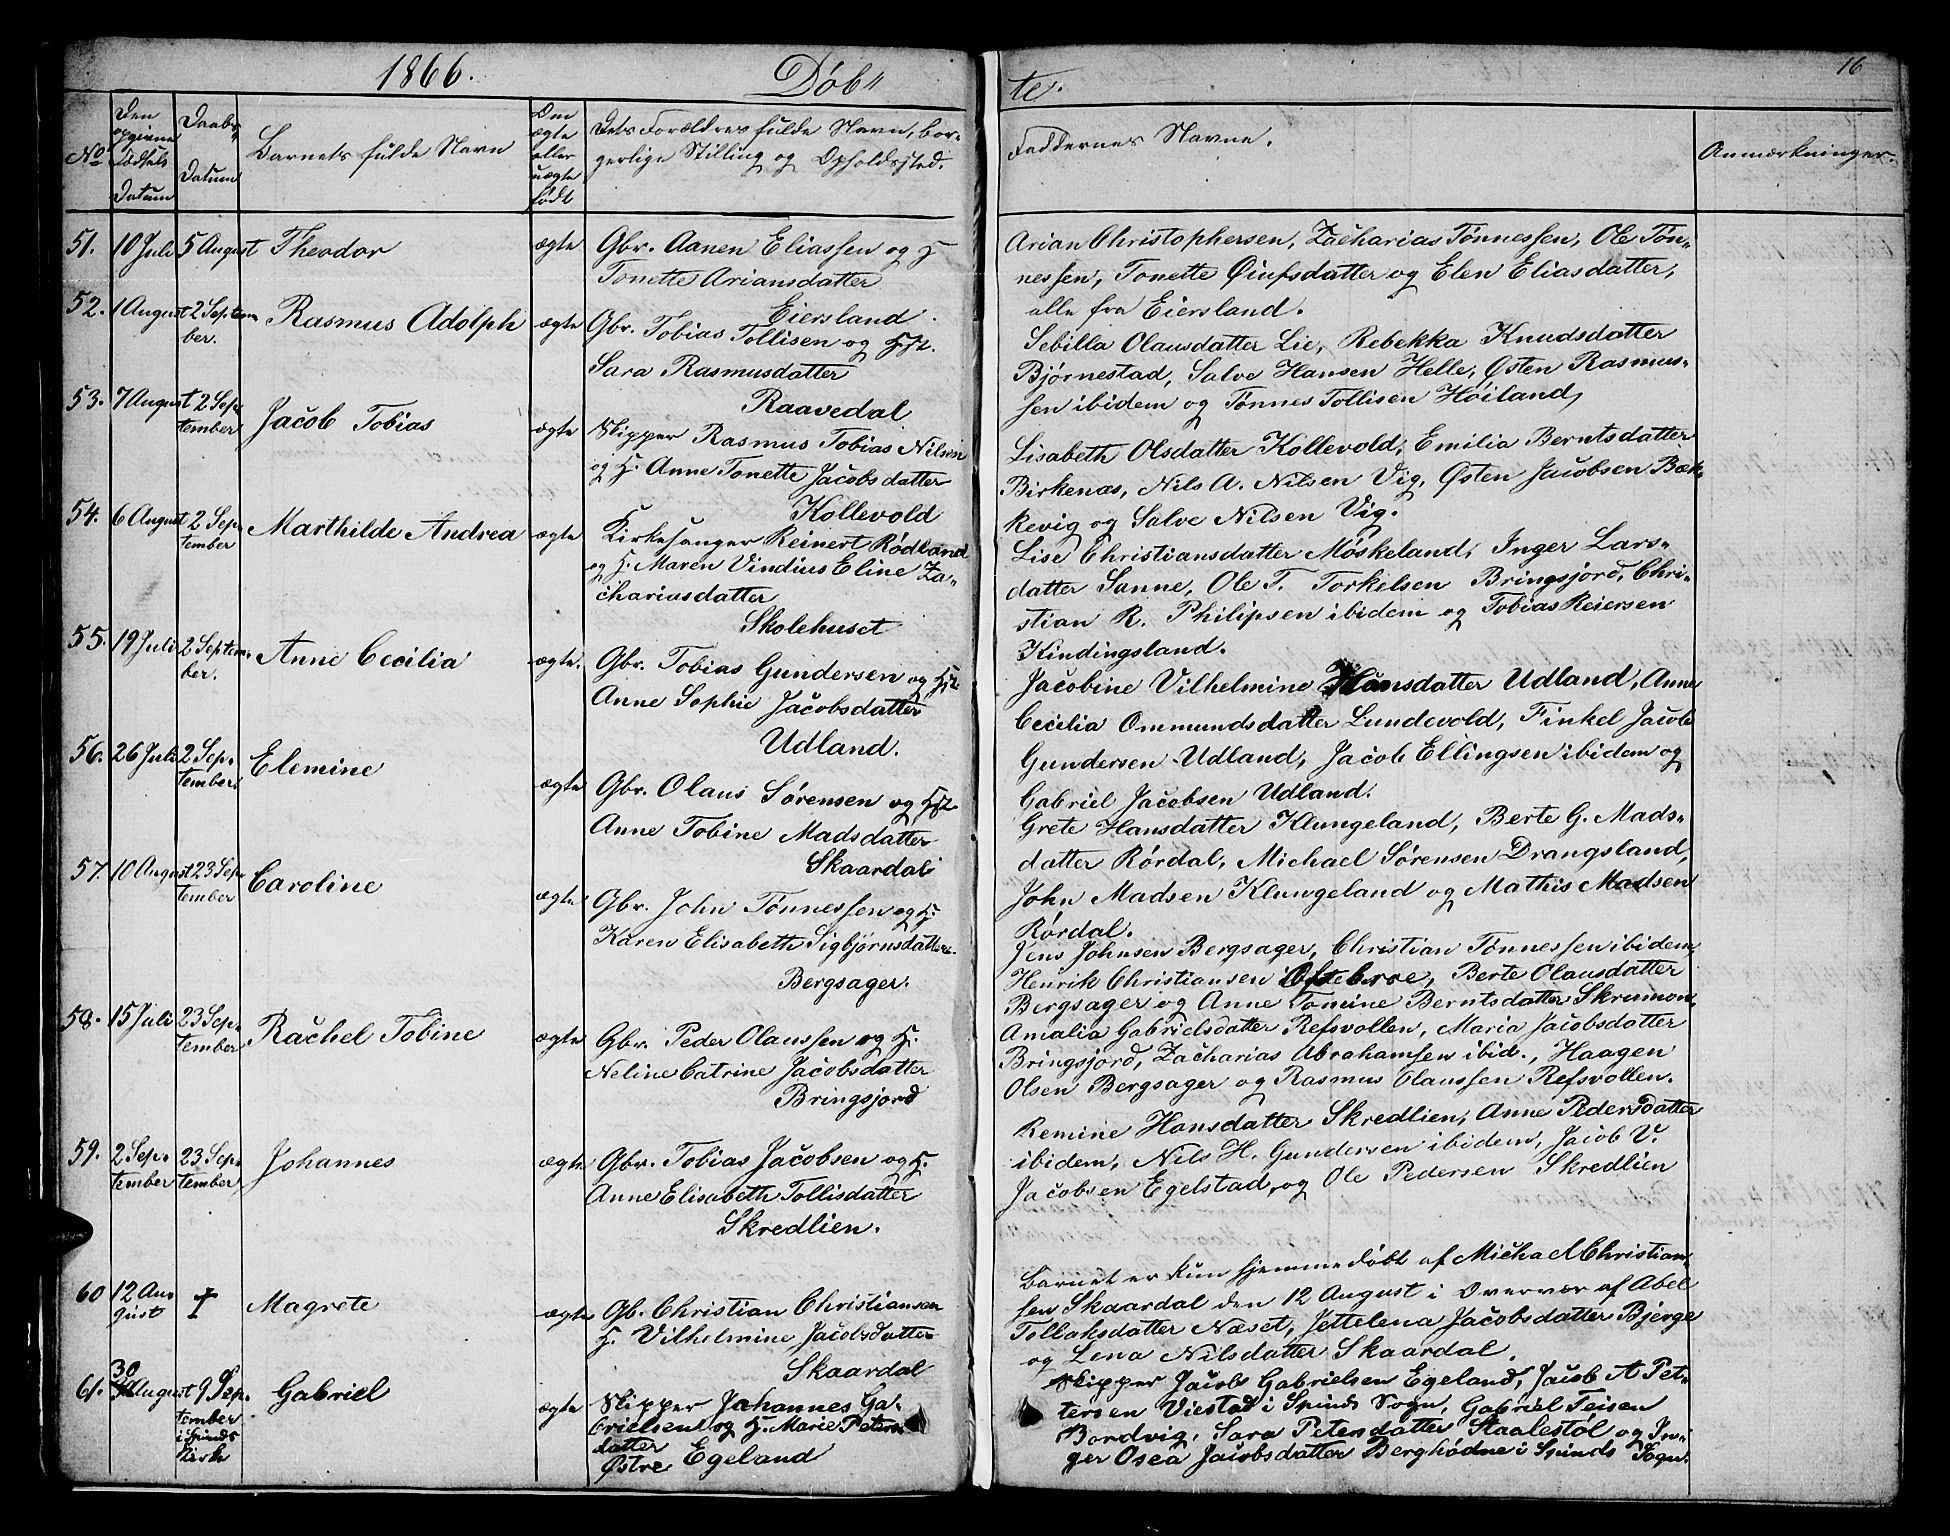 1866.
Døb"
te.
16
No
Den opgivne Fødsels Datum
Daabs Datum
Barnets fulde Navn
Om ægte eller uægte født
Dets Forældres fulde Navn, bor-
gerlige Stilling og Opholdssted.
Faddernes Navne.
Anmærkninger.
51. 10 Juli 5 August Theodor ægte Gbr. Aanen Eliassen og H
Tonette Ariansdatter
Eiersland.
Arian Christophersen, Zacharias Tønnessen, Ole Tøn-
nessen, Tonette Øiufsdatter og Elen Eliasdatter,
alle fra Eiersland.
52. 1 August 2 Septem
ber. Rasmus Adolph ægte Gbr. Tobias Tollisen og Hst.
Sara Rasmusdatter
Raavedal
Sebilla Olausdatter Lie, Rebekka Knudsdatter
Bjørnestad, Salve Hansen Helle, Østen Rasmus-
sen ibidem og Tønnes Tollisen Høiland,
53. 7 August 2 Sep-
tember Jacob Tobias ægte Skipper Rasmus Tobias Nilsen
og H. Anne Tonette Jacobsdatter
Kollevold
Lisabeth Olsdatter Kollevold, Emilia Berntsdatter
Birkenæs, Nils A. Nilsen Vig, Østen Jacobsen Bæk-
kevig og Salve Nilsen Vig.
54. 6 August 2 Sep-
tember Marthilde Andrea ægte Kirkesanger Reinert Rødland
og H. Maren Vindius Eline Za-
chariasdatter
Skolehuset
Lise Christiansdatter Møskeland, Inger Lars-
datter Sanne, Ole T. Torkelsen Bringsjord, Chri-
stian R. Philipsen ibidem og Tobias Reiersen
Kindingsland.
55. 19 Juli 2 Septem-
ber. Anne Cecilia ægte. Gbr. Tobias Gundersen og Hst.
Anne Sophie Jacobsdatter
Udland.
Jacobine Vilhelmine Hansdatter Udland, Anne
Cecilia Ommundsdatter Lundevold, Finkel Jacob
Gundersen Udland, Jacob Ellingsen ibidem og
Gabriel Jacobsen Udland.
56. 26 Juli 2 Sep-
tember. Elemine ægte Gbr. Olaus Sørensen og Hst.
Anne Tobine Madsdatter
Skaardal
Grete Hansdatter Klungeland, Berte G. Mads-
datter Rørdal, Michael Sørensen Drangsland,
John Madsen Klungeland og Mathis Madsen
Rørdal.
57. 10 August 23 Sep-
tember Caroline ægte Gbr. John Tønnessen og H.
Karen Elisabeth Sigbjørnsdatter
Bergsager.
Jens Johnsen Bergsager, Christian Tønnessen ibidem,
Henrik Christiansen Oftebroe, Berte Olausdatter
Bergsager og Anne Tomine Berntsdatter Skrumon.
58. 15 Juli 23 Sep-
tember Rachel Tobine ægte Gbr. Peder Olaussen og H.
Neline Catrine Jacobsdatter
Bringsjord
Amalia Gabrielsdatter Refsvollen, Maria Jacobsdatter
Bringsjord, Zacharias Abrahamsen ibid., Haagen
Olsen Bergsager og Rasmus Olaussen Refsvollen.
59. 2 Sep-
tember 23 Sep-
tember Johannes ægte Gbr. Tobias Jacobsen og H.
Anne Elisabeth Tollisdatter
Skredlien.
Remine Hansdatter Skredlien, Anne Pedersdatter
ibidem, Nils H. Gundersen ibidem, Jacob V.
Jacobsen Egelstad, og Ole Pedersen Skredlien
60 12 Au-
gust † Magrete ægte Gb. Christian Christiansen
H. Vilhelmine Jacobsdatter
Skaardal
Barnet er kun hjemmedøbt af Michael Christian-
sen Skaardal den 12 August i Overvær af Abel
Tollaksdatter Næset, Jettelena Jacobsdatter Bjerge
og Lena Nilsdatter Skaardal.
61. 30 August 9 Sep-
tember
i Spinds
Kirk Gabriel ægte Skipper Johannes Ga-
brielsen og H. Marie Peters-
datter
Østre Egeland
Skipper Jacob Gabrielsen Egeland, Jacob A Pet-
tersen Viestad i Spinds Sogn, Gabriel Feisen
Bordvig, Sara Petersdatter Staalestøl og In-
ger Osea Jacobsdatter Berghødne i Spinds Sogn.